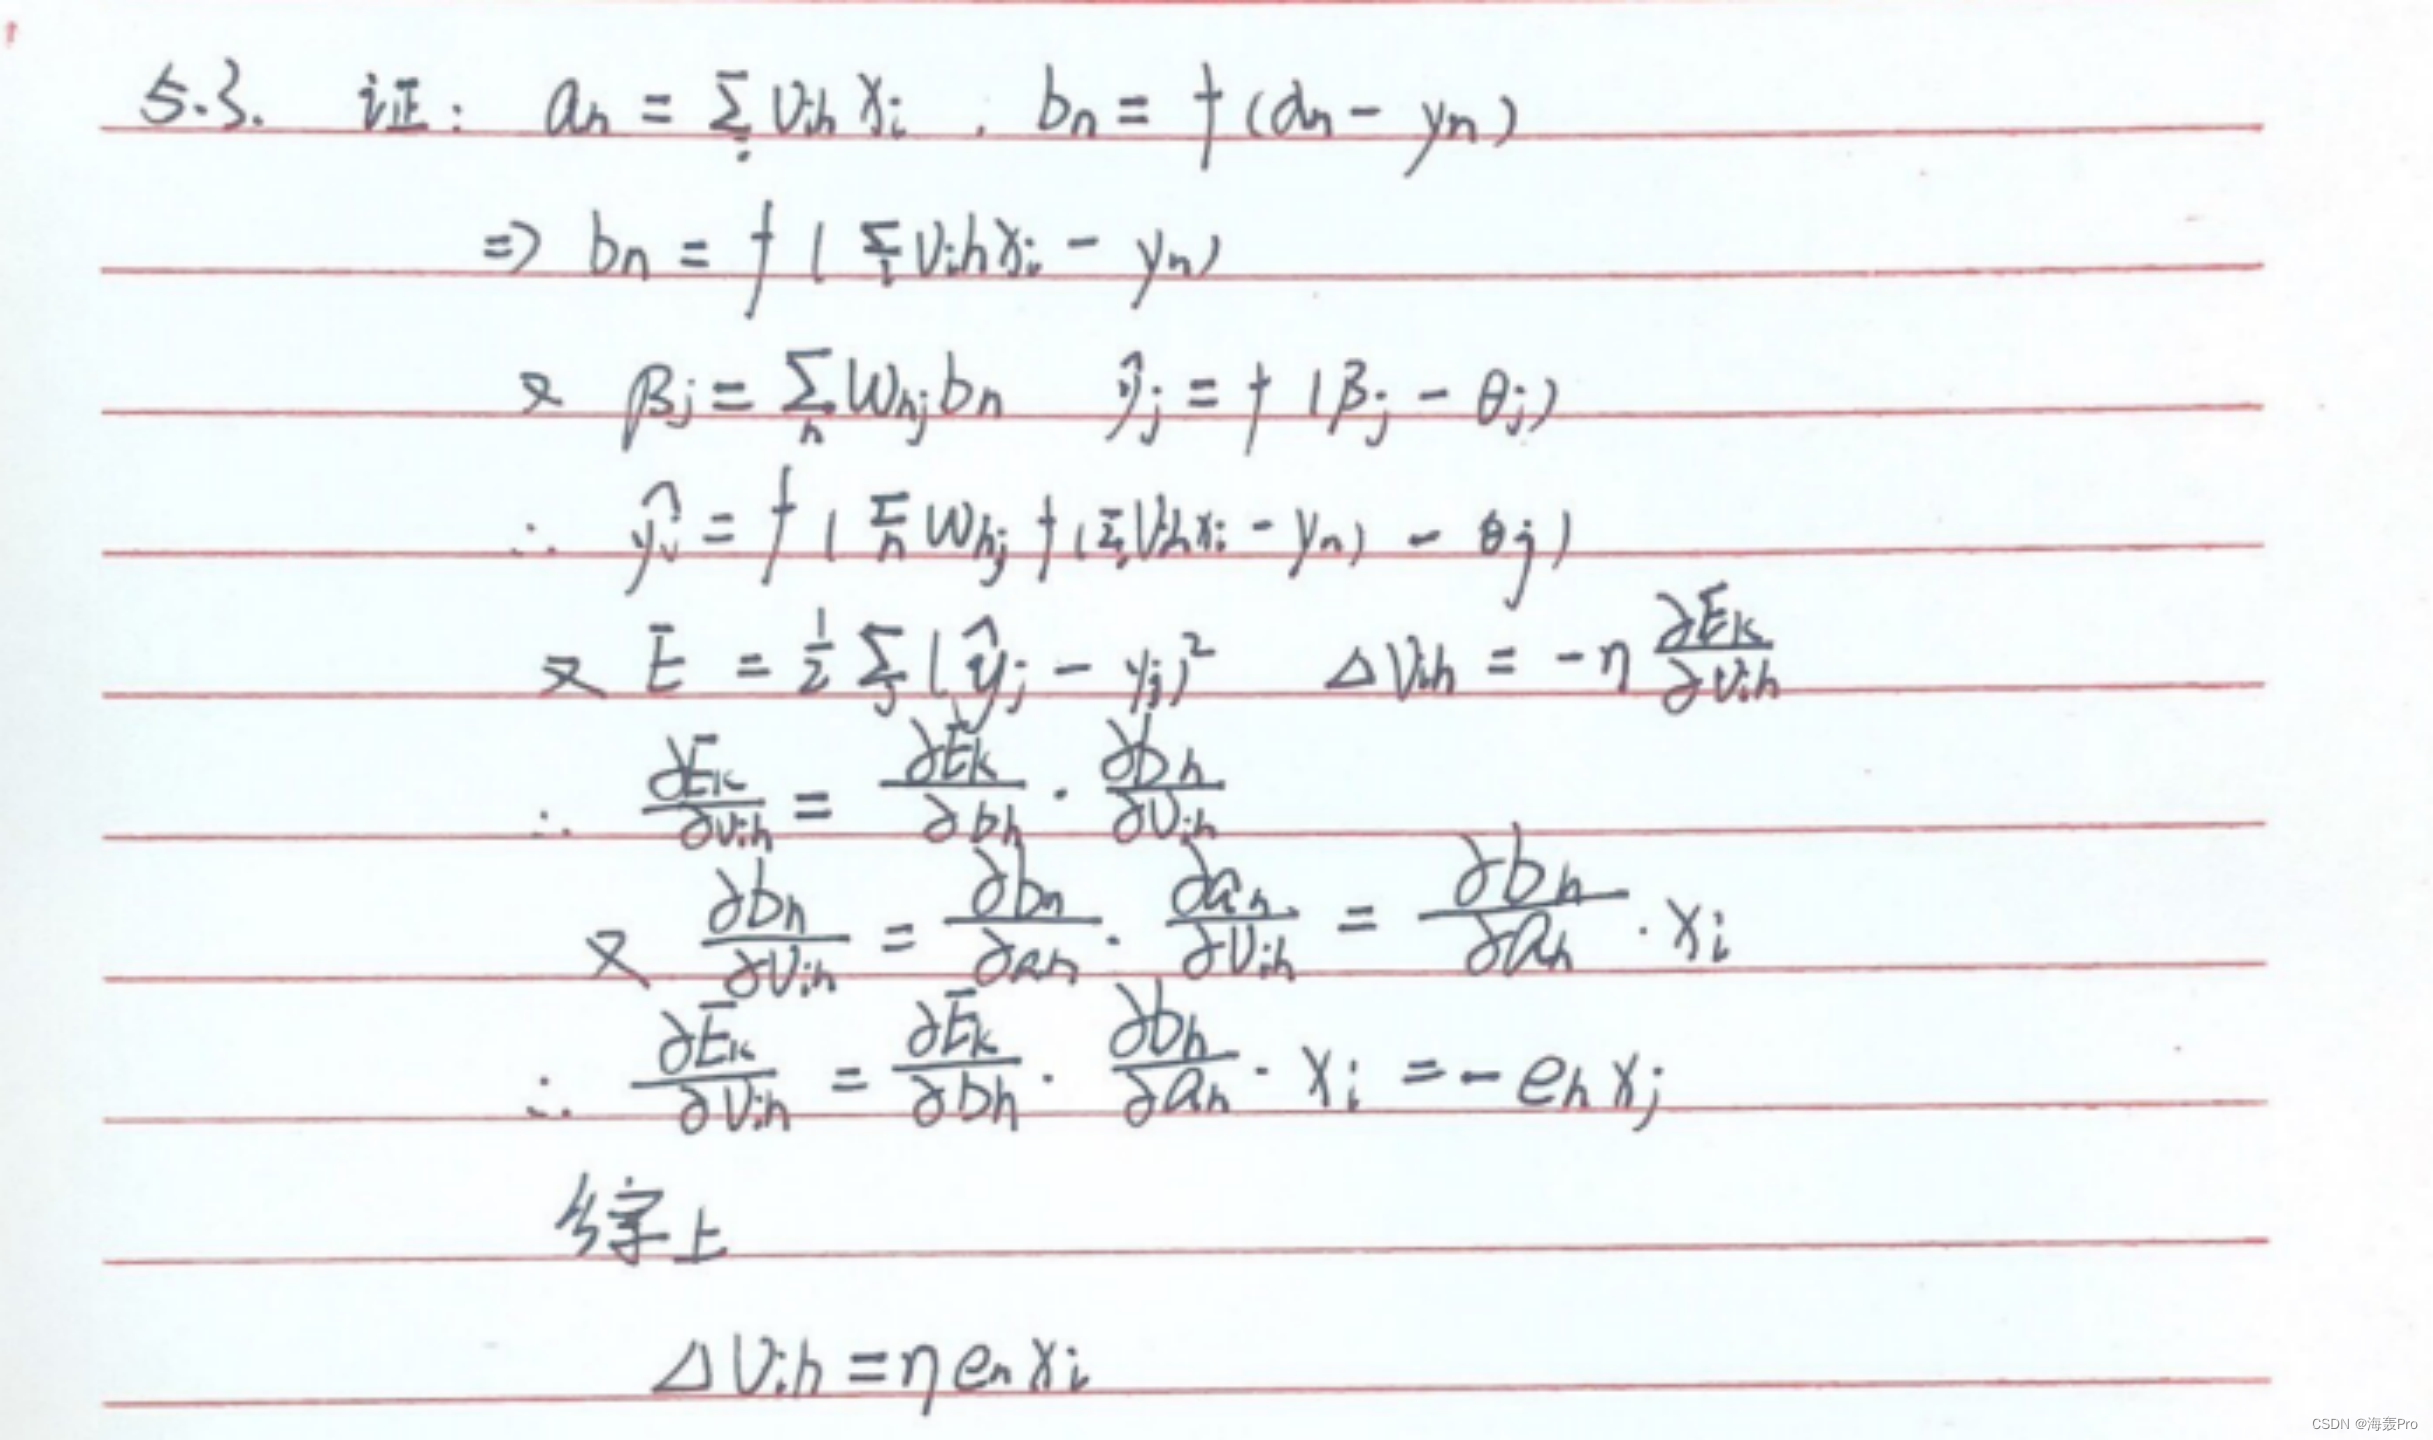 5.3. 证: aₕ = Σᵢ vᵢₕ xᵢ . bₕ = f (αₕ - γₕ)
=> bₕ = f ( Σᵢ vᵢₕ xᵢ - γₕ)
又 βⱼ = Σₕ wₕⱼ bₕ ŷⱼ = f (βⱼ - θⱼ)
∴ ŷⱼ = f ( Σₕ wₕⱼ f ( Σᵢ vᵢₕ xᵢ - γₕ) - θⱼ)
又 E = 1/2 Σⱼ (ŷⱼ - yⱼ)² Δvᵢₕ = -η ∂Eₖ/∂vᵢₕ
∴ ∂Eₖ/∂vᵢₕ = ∂Eₖ/∂bₕ · ∂bₕ/∂vᵢₕ
又 ∂bₕ/∂vᵢₕ = ∂bₕ/∂aₕ · ∂aₕ/∂vᵢₕ = ∂bₕ/∂aₕ · xᵢ
∴ ∂Eₖ/∂vᵢₕ = ∂Eₖ/∂bₕ · ∂bₕ/∂aₕ · xᵢ = - eₕ xⱼ
综上
Δvᵢₕ = η eₕ xᵢ
CSDN @海轰Pro